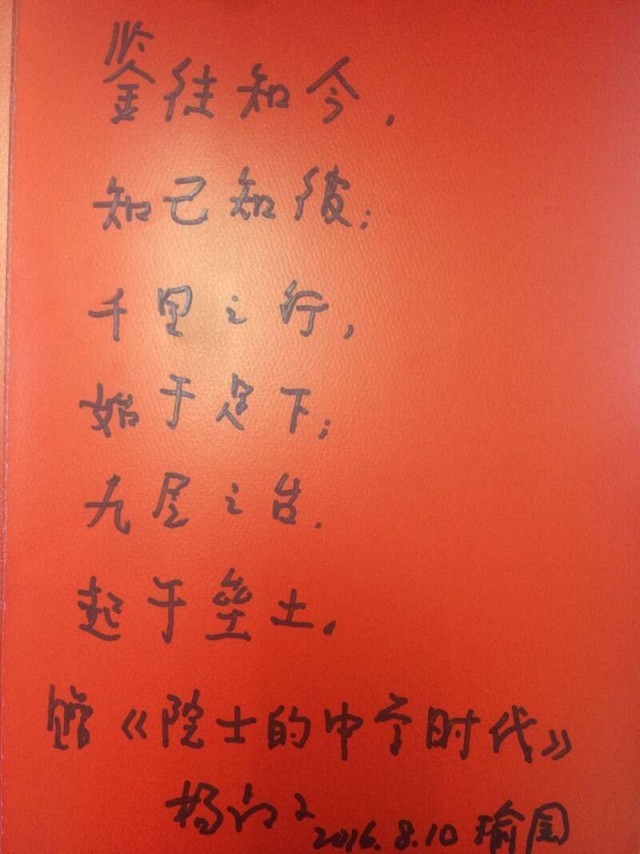 鉴往知今，
知己知彼；
千里之行，
始于足下；
九层之台．
起于垒土．
赠《院士的中学时代》
杨 2016.8.10 瑜园